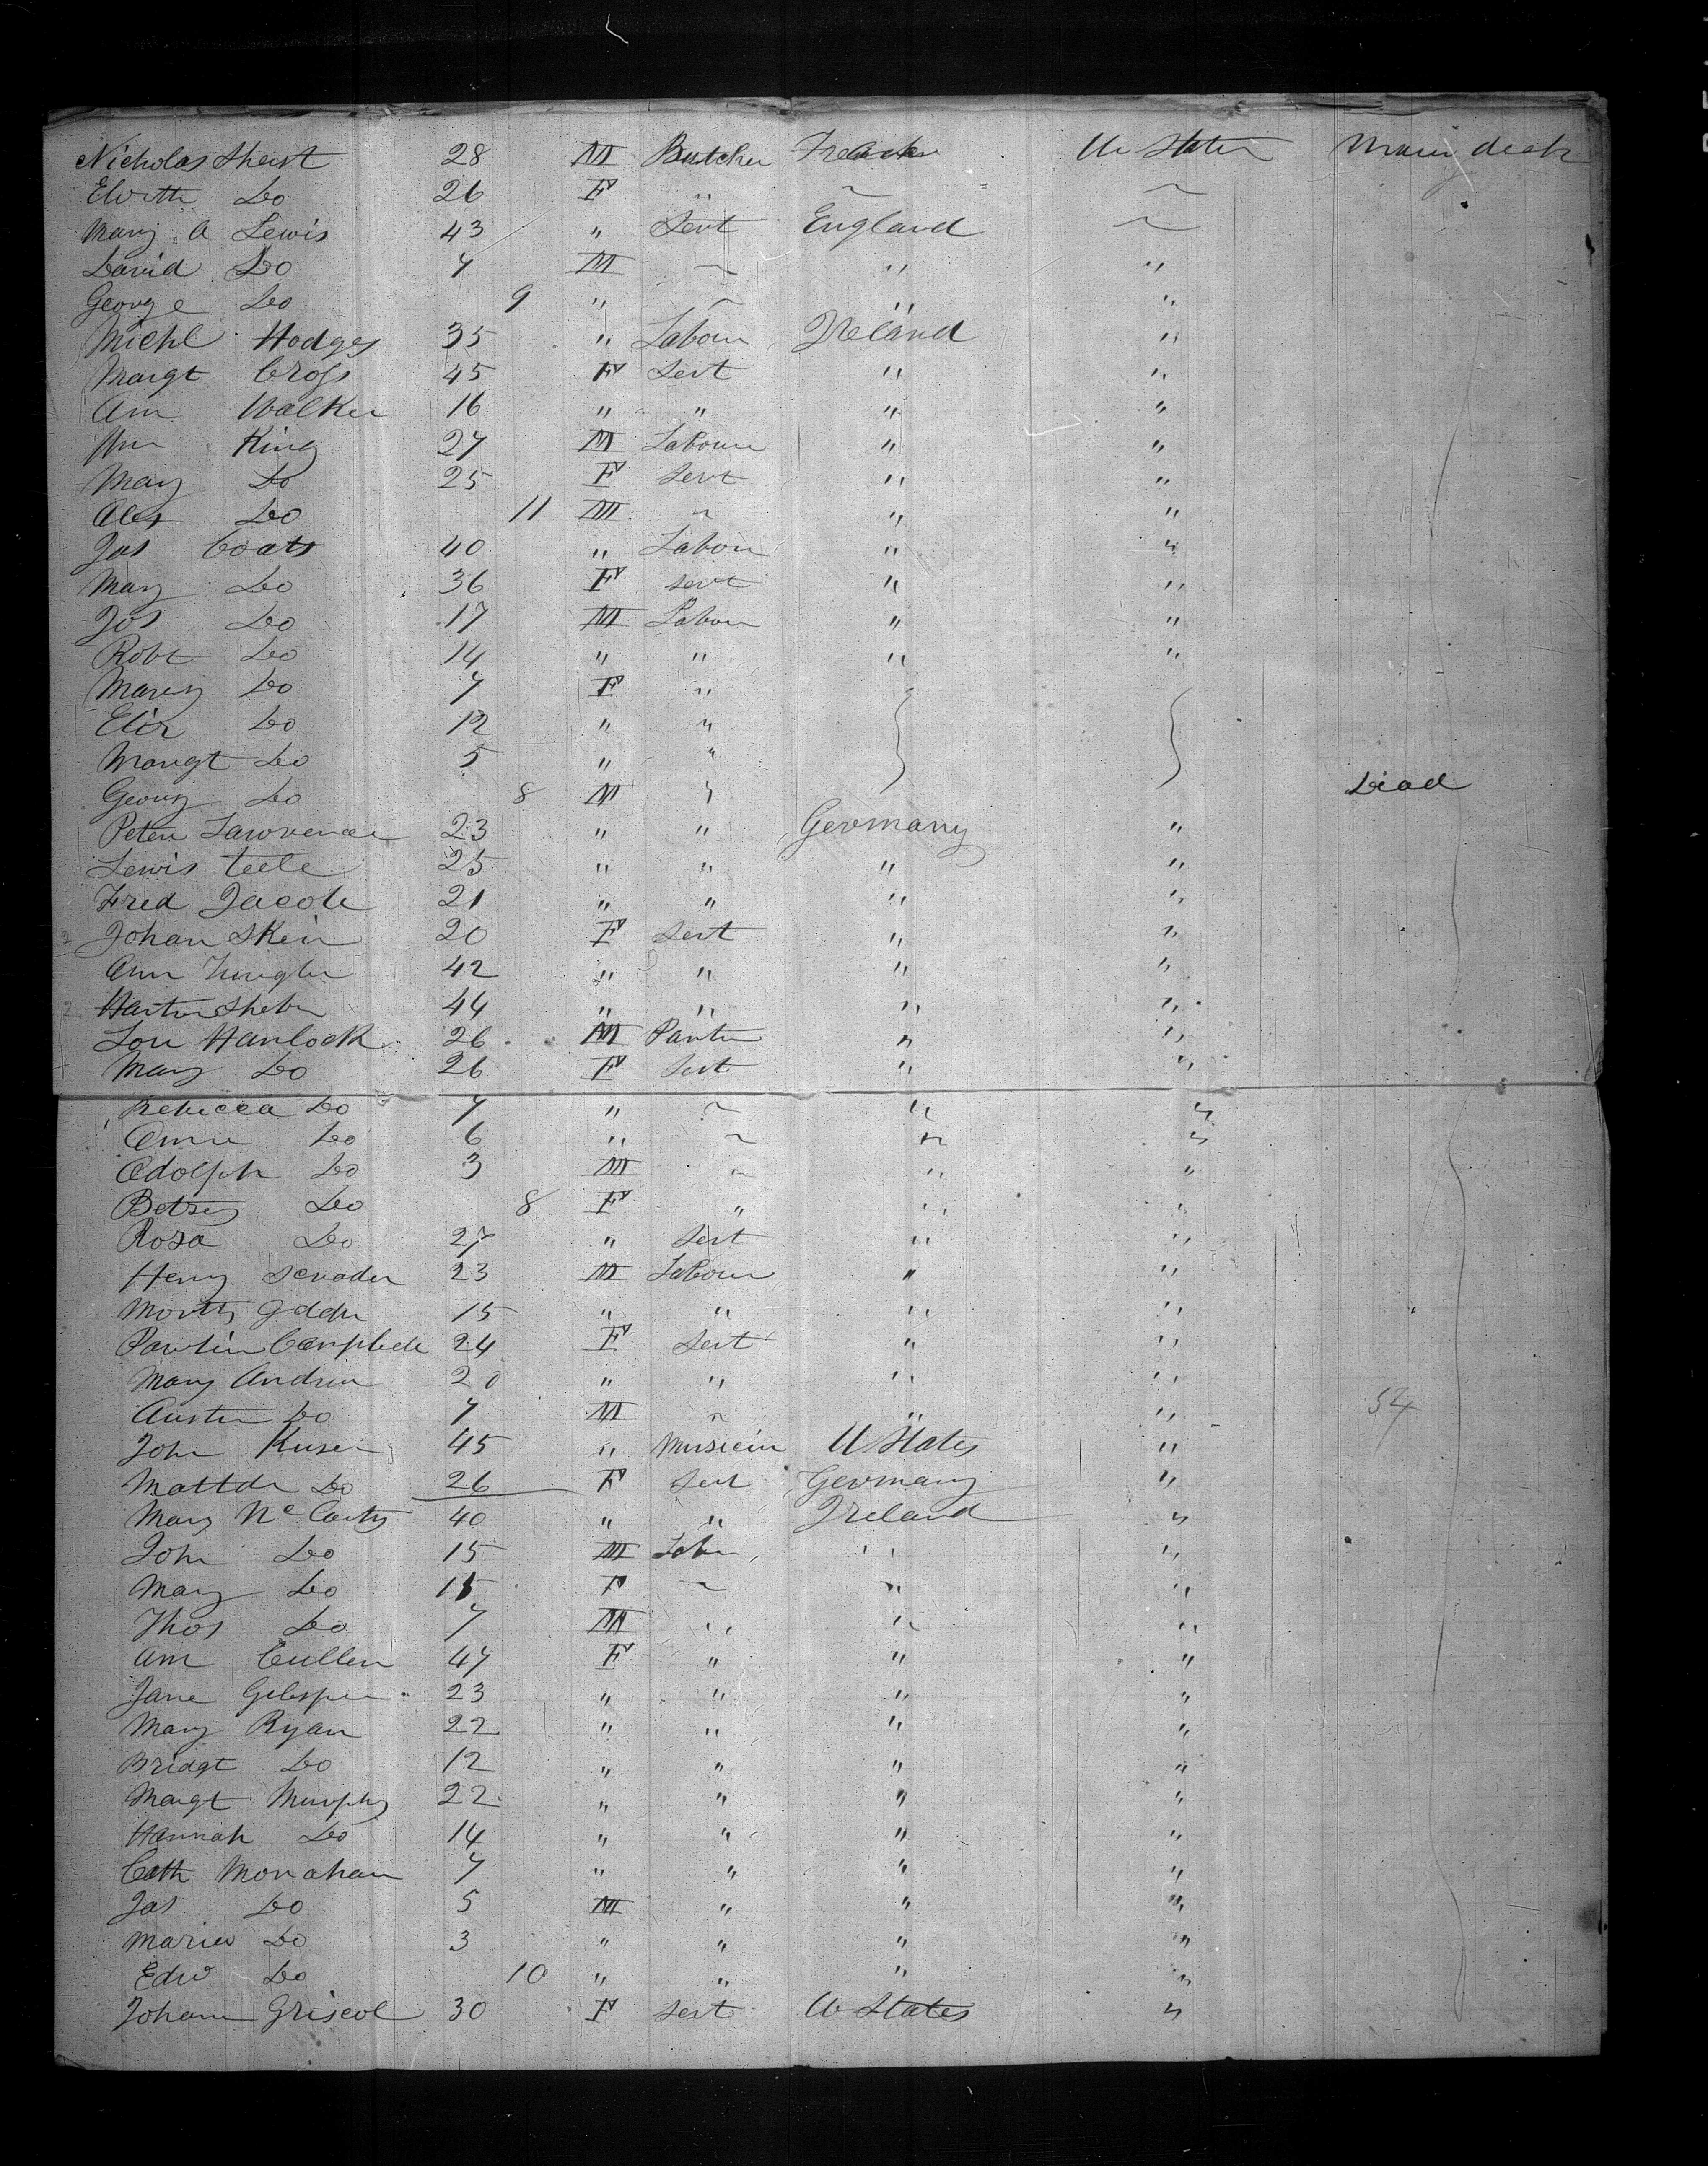 Nicholas Sheist 28 M Butcher U States Main deck
Elisth Do 26 F " ~ ~
Mary A Lewis 43 " Sert England ~
David Do 7 M ~ " "
George Do 9 " ~ " "
Michl Hodges 35 " Labour Ireland "
Margt Cross 45 F Sert " "
Ann Walker 16 " " " "
Wm King 27 M Labour " "
Mary Do 25 F Servt " "
Alex Do 11 M ~ " "
Jas Coats 40 " Labour " "
Mary Do 36 F Servt " "
Jos Do 17 M Labour " "
Robt Do 14 " " " "
Marey Do 7 F "
Eliz Do 12 " "
Margt Do 5 " "
Georg Do 8 M " Died
Peter Lawrence 23 " " Germany "
Lewis teele 25 " " " "
Fred Jacob 21 " " " "
Johan Skein 20 F Sert " "
Ann 42 " " " "
44 " " " "
Lou Hanlock 26 M " "
Mary Do 26 F Sert " "
Rebecca Do 7 " ~ " "
Annie Do 6 " ~ " "
Adolph Do 3 M ~ " "
Betsey Do 8 F " " "
Rosa Do 27 " Sert " "
Henry Scrader 23 M Labour " "
15 " " " "
Paulin Campbell 24 F Sert " "
Mary Andrew 20 " " " "
Austin Do 7 M ~ " " 54
John Kuser 45 " Musicin U States "
Mattda Do 26 F Sert Germany "
Mary Mc Carty 40 " " Ireland "
John Do 15 M Labr " "
Mary Do 15 F ~ " "
Thos Do 7 M " " "
Ann Cullen 47 F " " "
Jane Gilespie 23 " " " "
Mary Ryan 22 " " " "
Bridgt Do 12 " " " "
Margt Murphy 22 " " " "
Hannah Do 14 " " " "
Cath Monahan 7 " " " "
Jas Do 5 M " " "
Maria Do 3 " " " "
Edw Do 10 " " " "
Johann Griscol 30 F Sert U States "